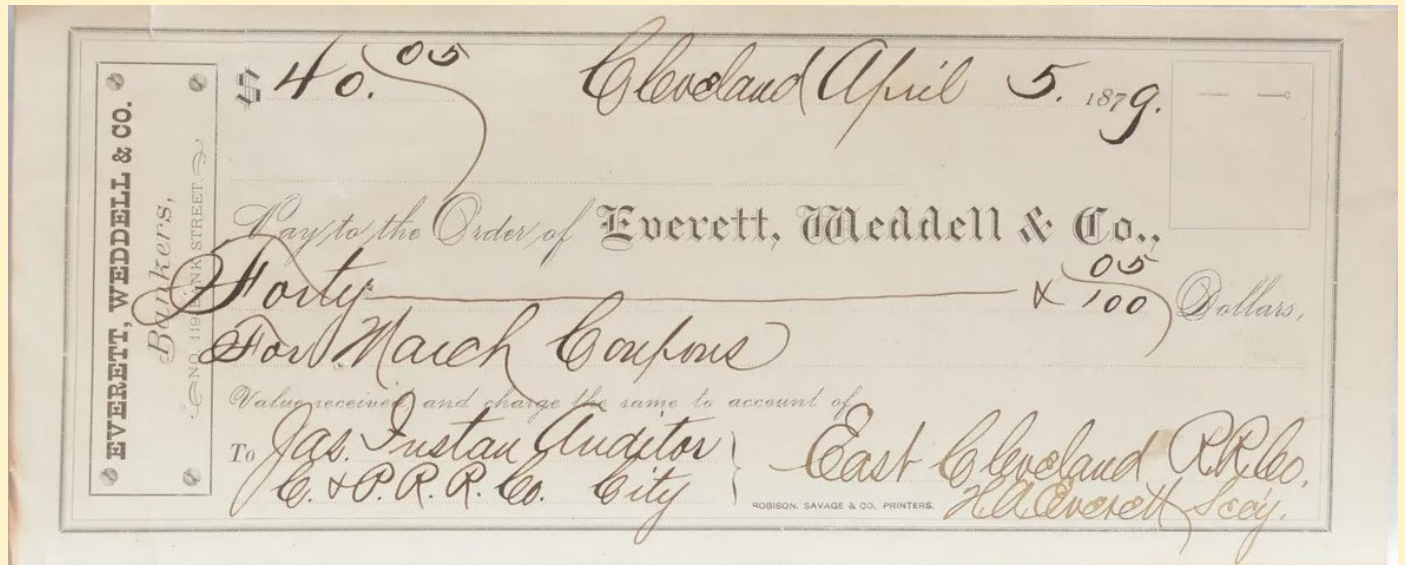 EVERETT, WEDDELL & CO.
Bankers,
NO. 119 BANK STREET.
$ 40. 05 Cleveland April 5. 1879.
Pay to the Order of Everett, Weddell & Co.,
Forty & 05/100 Dollars,
For March Coupons
Value received, and charge the same to account of
To Jas. Auditor East Cleveland R.R. Co.
C. & P. R. R. Co. City H.A. Everett Secy.
ROBISON, SAVAGE & CO. PRINTERS.